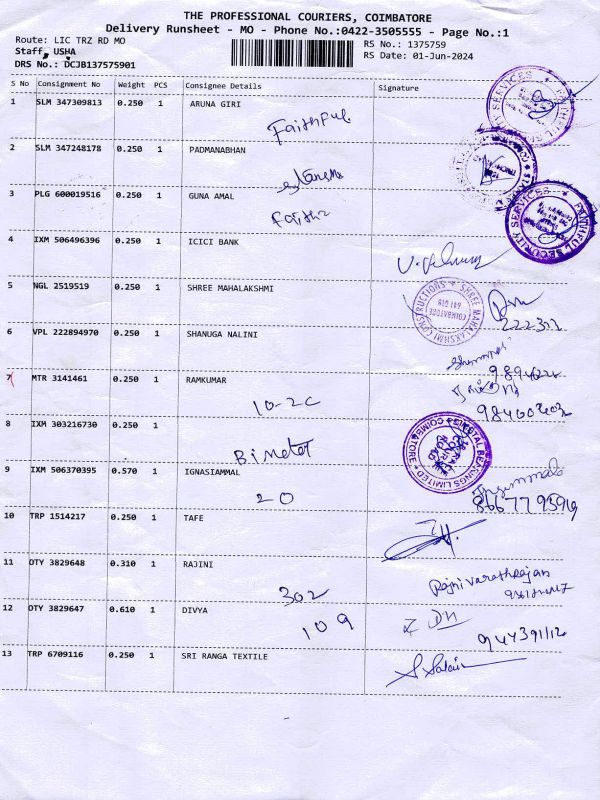 THE PROFESSIONAL COURIERS, COIMBATORE
Delivery Runsheet - MO - Phone No.:0422-3505555 - Page No.:1
Route: LIC TRZ RD MO
RS No.: 1375759
Staff: USHA
RS Date: 01-Jun-2024
DRS No.: DCJB137575901
S No Consignment No Weight PCS Consignee Details Signature
1 SLM 347309813 0.250 1 ARUNA GIRI
Faithful
2 SLM 347248178 0.250 1 PADMANABHAN
3 PLG 600019516 0.250 1 GUNA AMAL
FAITHFUL SECURITY SERVICES
4 IXM 506496396 0.250 1 ICICI BANK
5 NGL 2519519 0.250 1 SHREE MAHALAKSHMI
SHREE MAHALAKSHMI CONSTRUCTIONS
COIMBATORE
641 018
6 VPL 222894970 0.250 1 SHANUGA NALINI
7 MTR 3141461 0.250 1 RAMKUMAR
10-2C
8 IXM 303216730 0.250 1
Bimetal
BIMETAL BEARINGS LIMITED * COIMBATORE
9 IXM 506370395 0.570 1 IGNASIAMMAL
20
10 TRP 1514217 0.250 1 TAFE
11 OTY 3829648 0.310 1 RAJINI
302
Rajni varathrajan
12 OTY 3829647 0.610 1 DIVYA
109
13 TRP 6709116 0.250 1 SRI RANGA TEXTILE